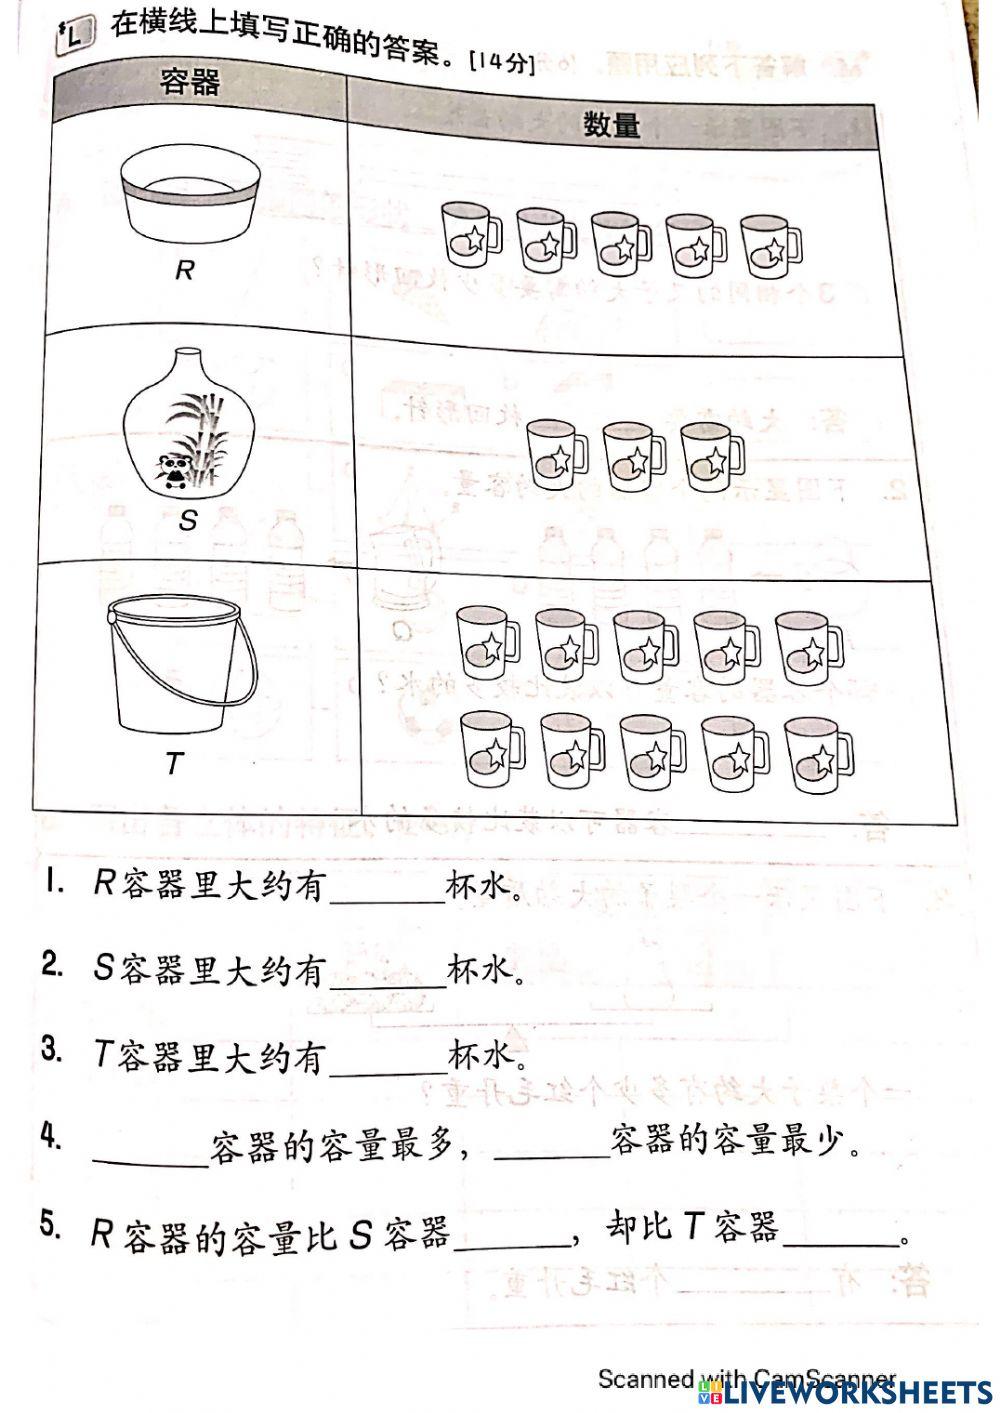 L 在横线上填写正确的答案。[14分]
容器 数量
R
S
T
1. R容器里大约有______杯水。
2. S容器里大约有______杯水。
3. T容器里大约有______杯水。
4. ______容器的容量最多，______容器的容量最少。
5. R容器的容量比S容器______，却比T容器______。
Scanned with CamScanner
LIVEWORKSHEETS